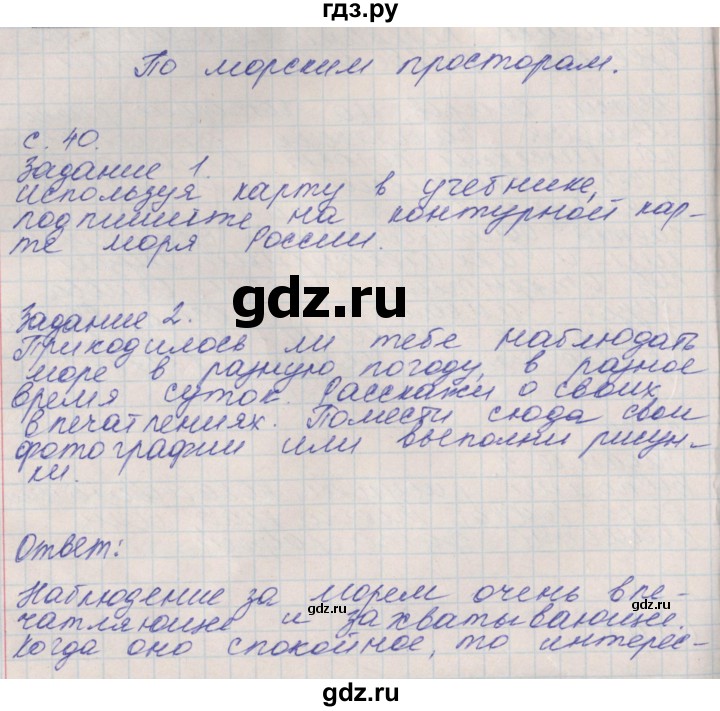 гдз.ру
По морским просторам.
с. 40.
Задание 1.
используя карту в учебнике,
подпишите на контурной кар-
те моря России.
gdz.ru
Задание 2.
Приходилось ли тебе наблюдать
море в разную погоду, в разное
время суток. Расскажи о своих
впечатлениях. Помести сюда свои
фотографии или выполни рисун-
ки.
Ответ:
Наблюдение за морем очень впе-
чатляюще и захватывающе.
Когда оно спокойное, то интерес-
gdz.ru